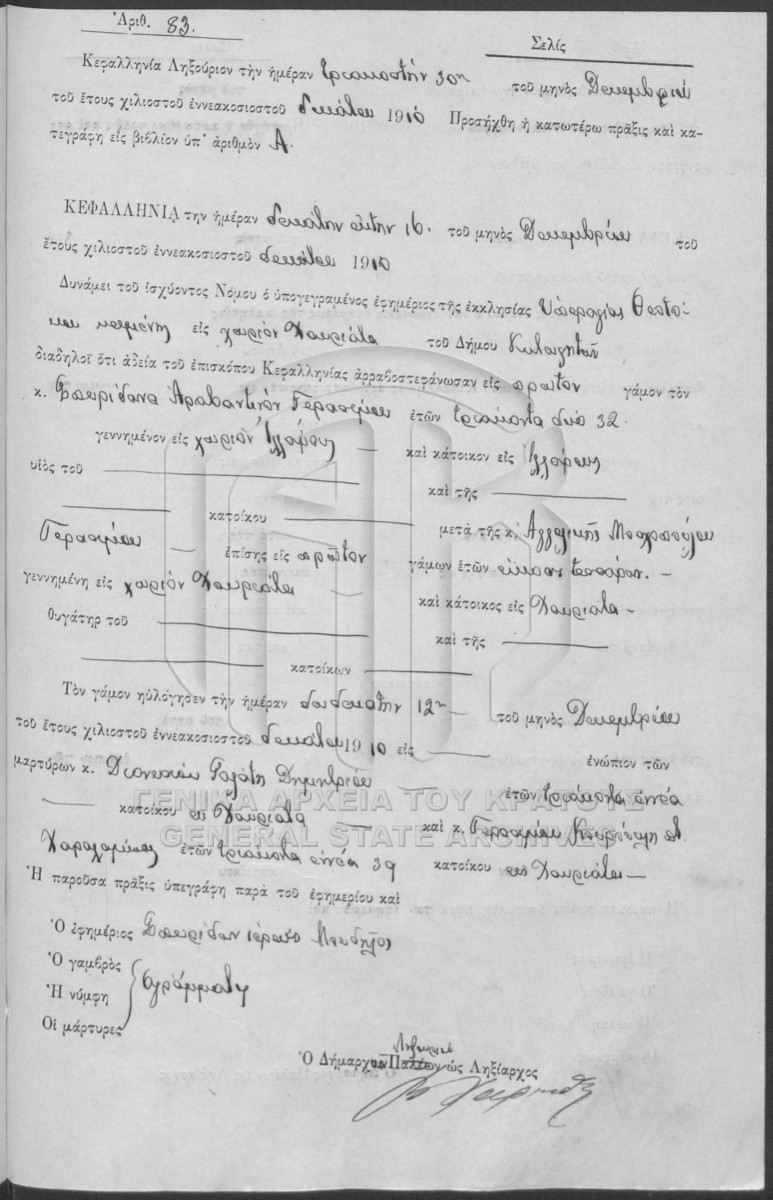 Ἀριθ. 83.
Σελὶς
Κεφαλληνία Ληξούριον τὴν ἡμέραν τριακοστὴν 30ην τοῦ μηνὸς Δεκεμβρίου
τοῦ ἔτους χιλιοστοῦ ἐννεακοσιοστοῦ δεκάτου 1910 Προσήχθη ἡ κατωτέρω πρᾶξις καὶ κα-
τεγράφη εἰς βιβλίον ὑπ' ἀριθμὸν Α.
ΚΕΦΑΛΛΗΝΙΑ τὴν ἡμέραν δεκάτην ἕκτην 16. τοῦ μηνὸς Δεκεμβρίου τοῦ
ἔτους χιλιοστοῦ ἐννεακοσιοστοῦ δεκάτου 1910
Δυνάμει τοῦ ἰσχύοντος Νόμου ὁ ὑπογεγραμένος ἐφημέριος τῆς ἐκκλησίας Ὑπεραγίας Θεοτό-
κου κειμένης εἰς χωρίον Χαυριάτα τοῦ Δήμου
διαδηλοῖ ὅτι ἀδεία τοῦ ἐπισκόπου Κεφαλληνίας ἀρραβοστεφάνωσαν εἰς πρῶτον γάμον τὸν
κ. Σπυρίδωνα Ἀραβαντινὸν Γερασίμου ἐτῶν τριάκοντα δύο 32
γεννημένον εἰς χωρίον καὶ κάτοικον εἰς
υἱὸς τοῦ καὶ τῆς
κατοίκου μετὰ τῆς κ. Ἀγγελικῆς Μοσχοπούλου
Γερασίμου ἐπίσης εἰς πρῶτον γάμων ἐτῶν εἴκοσι τεσσάρων.
γεννημένη εἰς χωρίον Χαυριάτα καὶ κάτοικος εἰς Χαυριάτα
θυγάτηρ τοῦ καὶ τῆς
κατοίκων
Τὸν γάμον ηὐλόγησεν τὴν ἡμέραν δωδεκάτην 12ην τοῦ μηνὸς Δεκεμβρίου
τοῦ ἔτους χιλιοστοῦ ἐννεακοσιοστοῦ δεκάτου 1910 εἰς ἐνώπιον τῶν
μαρτύρων κ. Διονυσίου Γαλάτη Δημητρίου ἐτῶν τριάκοντα ἐννέα
κατοίκου εἰς Χαυριάτα καὶ κ. Γερασίμου
Χαραλάμπους ἐτῶν τριάκοντα ἐννέα 39 κατοίκου εἰς Χαυριάτα
Ἡ παροῦσα πρᾶξις ὑπεγράφη παρὰ τοῦ ἐφημερίου καὶ
Ὁ ἐφημέριος Σπυρίδων ἱερεὺς
Ὁ γαμβρὸς
Ἡ νύμφη ἀγράμματοι
Οἱ μάρτυρες
Ὁ Δήμαρχος Παλέων ὡς Ληξίαρχος
ΓΕΝΙΚΑ ΑΡΧΕΙΑ ΤΟΥ ΚΡΑΤΟΥΣ
GENERAL STATE ARCHIVES